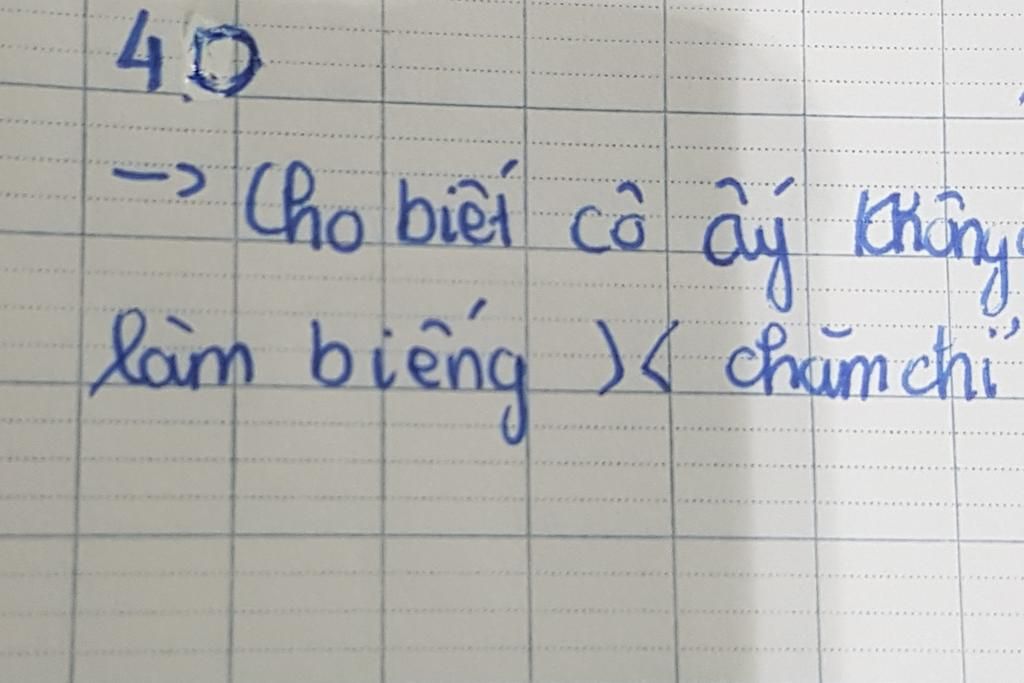 4.D
→ Cho biết cô ấy không
làm biếng >< chăm chỉ